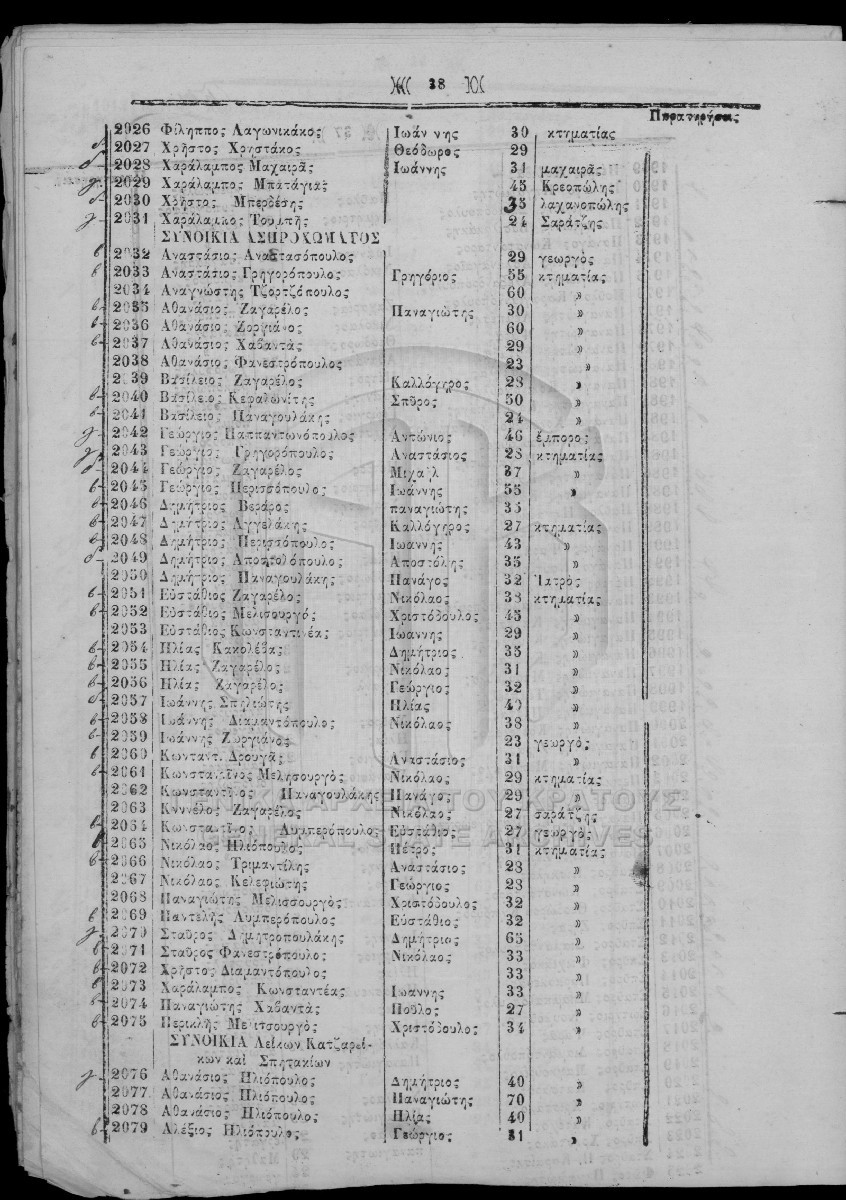 38
Παρατηρήσεις
2026 Φίληππος Λαγωνικάκος Ιωάννης 30 κτηματίας
2027 Χρῆστος Χρηστάκος Θεόδωρος 29
2028 Χαράλαμπος Μαχαιρᾶς Ιωάννης 31 μαχαιρᾶς
2029 Χαράλαμπος Μπατάγιας 45 Κρεοπώλης
2030 Χρῆστος Μπερδέσης 35 λαχανοπώλης
2031 Χαράλαμπος Τουμπῆς 24 Σαράτζης
ΣΥΝΟΙΚΙΑ ΑΣΠΡΟΧΩΜΑΤΟΣ
2032 Αναστάσιος Αναστασόπουλος 29 γεωργὸς
2033 Αναστάσιος Γρηγορόπουλος Γρηγόριος 55 κτηματίας
2034 Αναγνώστης Τζορτζόπουλος 60 »
2035 Αθανάσιος Ζαγαρέλος Παναγιώτης 30 »
2036 Αθανάσιος Ζοργιάνος 60 »
2037 Αθανάσιος Χαβαντὰς 29 »
2038 Αθανάσιος Φανεστρόπουλος 23 »
2039 Βασίλειος Ζαγαρέλος Καλλόγηρος 28 »
2040 Βασίλειος Κεφαλωνίτης Σπῦρος 50 »
2041 Βασίλειος Παναγουλάκης 24 »
2042 Γεώργιος Παππαντωνόπουλος Αντώνιος 46 ἔμπορος
2043 Γεώργιος Γρηγορόπουλος Αναστάσιος 28 κτηματίας
2044 Γεώργιος Ζαγαρέλος Μιχαὴλ 37 »
2045 Γεώργιος Περισσόπουλος Ιωάννης 55 »
2046 Δημήτριος Βεράρος παναγιώτης 35
2047 Δημήτριος Αγγελάκης Καλλόγηρος 27 κτηματίας
2048 Δημήτριος Περισσόπουλος Ιωαννης 43 »
2049 Δημήτριος Αποστολόπουλος Αποστόλης 35 »
2050 Δημήτριος Παναγουλάκης Πανάγος 32 Ἰατρὸς
2051 Εὐστάθιος Ζαγαρέλος Νικόλαος 38 κτηματίας
2052 Εὐστάθιος Μελισουργὸς Χριστόδουλος 45 »
2053 Εὐστάθιος Κωνσταντινέας Ιωαννης 29 »
2054 Ηλίας Κακολέβας Δημήτριος 35 »
2055 Ηλίας Ζαγαρέλος Νικόλαος 31 »
2056 Ηλίας Ζαγαρέλος Γεώργιος 32 »
2057 Ιωάννης Σπηλιώτης Ηλίας 40 »
2058 Ιωάννης Διαμαντόπουλος Νικόλαος 38 »
2059 Ιωάννης Ζωργιάνος 23 γεωργὸς
2060 Κωνταντ. Δρουγᾶς Αναστάσιος 31 »
2061 Κωνσταντῖνος Μελησουργὸς Νικόλαος 29 κτηματίας
2062 Κωνσταντῖνος Παναγουλάκης Πανάγος 29 »
2063 Κννέλος Ζαγαρέλος Νικόλαος 27 σαράτζης
2064 Κωνσταντῖνος Λυμπερόπουλος Εὐστάθιος 27 γεωργὸς
2065 Νικόλαος Ηλιόπουλος Πέτρος 31 κτηματίας
2066 Νικόλαος Τριμαντίλης Αναστάσιος 28 »
2067 Νικόλαος Κελεφιώτης Γεώργιος 28 »
2068 Παναγιώτης Μελισσουργὸς Χριστόδουλος 32 »
2069 Παντελῆς Λυμπερόπουλος Εὐστάθιος 32 »
2070 Σταῦρος Δημητροπουλάκης Δημήτριος 65 »
2071 Σταῦρος Φανεστρόπουλος Νικόλαος 33 »
2072 Χρῆστος Διαμαντόπουλος 33 »
2073 Χαράλαμπος Κωνσταντέας Ιωαννης 33 »
2074 Παναγιώτης Χαβαντὰς Ποῦλος 27 »
2075 Περικλῆς Μελιτσουργὸς Χριστόδουλος 34 »
ΣΥΝΟΙΚΙΑ Λείκων Κατζαρεΐ-
κων καὶ Σπητακίων
2076 Αθανάσιος Ηλιόπουλος Δημήτριος 40 »
2077 Αθανάσιος Ηλιόπουλος Παναγιώτης 70 »
2078 Αθανάσιος Ηλιόπουλος Ηλίας 40 »
2079 Αλέξιος Ηλιόπουλος Γεώργιος 31 »